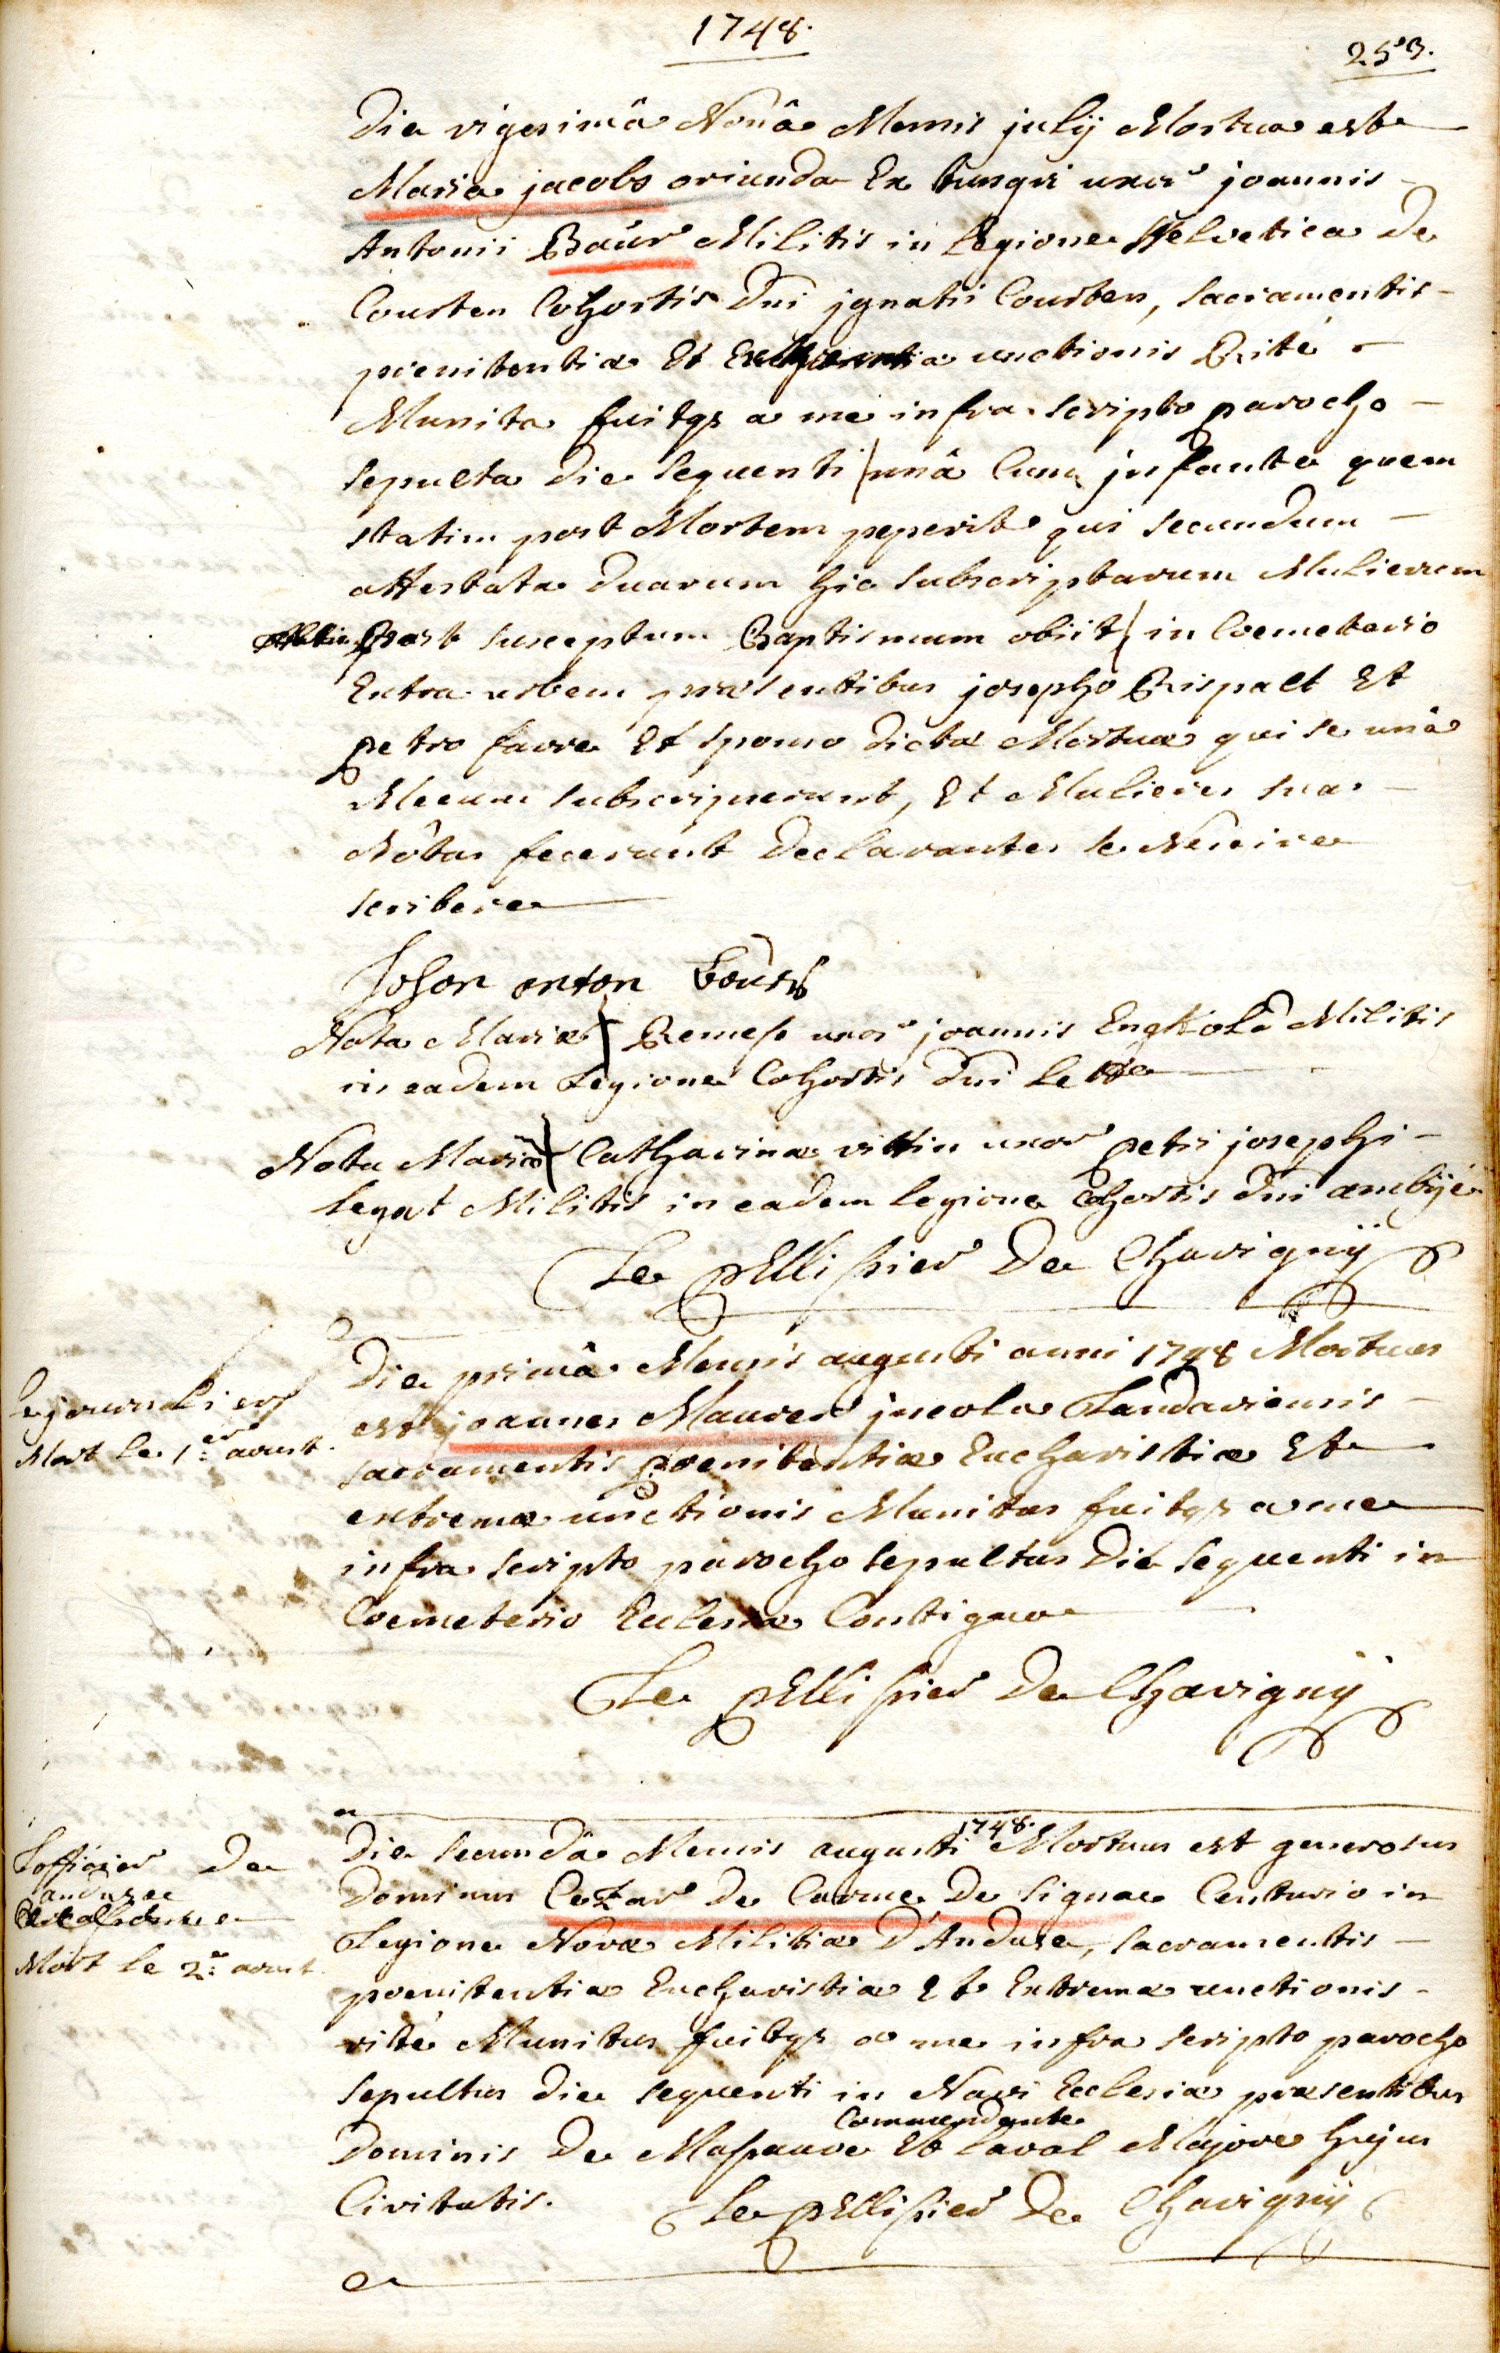 1748.
253.
Die vigesimâ Nonâ Mensis julij Mortua est
Maria jacobs oriunda Ex tungri uxor joannis
Antonii Baür Militis in Legione Helvetica De
Courten Cohortis Dni jgnatii Courten, sacramentis
poenitentiæ Et unctionis Rité
Munita fuitqs a me infra scripto parocho
sepulta die sequenti unâ Cum jnfante quem
statim post Mortem peperit qui secundum
attestata duarum hic subscriptarum Mulierum
Post susceptum Baptismum obiit in Coemeterio
Extra urbem præsentibus josepho Rispalt Et
petro favre Et sponso dictæ Mortuæ qui se unâ
Mecum subscripserunt, Et Mulieres suas
Nôtas fecerunt Declarantes se Nescire
scribere
Johan anton Baur
Nota Mariæ Remess uxor joannis Engkold Militis
in eadem Legione Cohortis Dni le
Nota Mariæ Catharinæ vittin uxor petri josephi
legat Militis in eadem legione Cohortis Dni ambijé
Le pElliſsier De Chavignÿ
Die primâ Mensis augusti anni 1748 Mortuus
est joannes Maurer jncola Landaviensis
sacramentis poenitentiæ Eucharistiæ Et
extremæ unctionis Munitus fuitqs a me
infra scripto parocho sepultus Die sequenti in
Coemeterio Ecclesiæ Contiguo
Le pElliſsier De Chavignÿ
le journalier
Mort le 1.er aoust
Die secundâ Mensis augusti 1748. Mortuus est generosus
Dominus Cezar De Carme De Signac Centurio in
Legione Novæ Militiæ D'Anduze, sacramentis
poenitentiæ Eucharistiæ Et Extremæ unctionis
rité Munitus fuitqs a me infra scripto parocho
sepultus die sequenti in Navi Ecclesiæ præsentibus
Commendante
Dominis De Maſsauve Et laval Majore hujus
Civitatis.
Le pElliſsier De Chavignÿ
L'officier De
anduzee
Mort le 2.e aoust